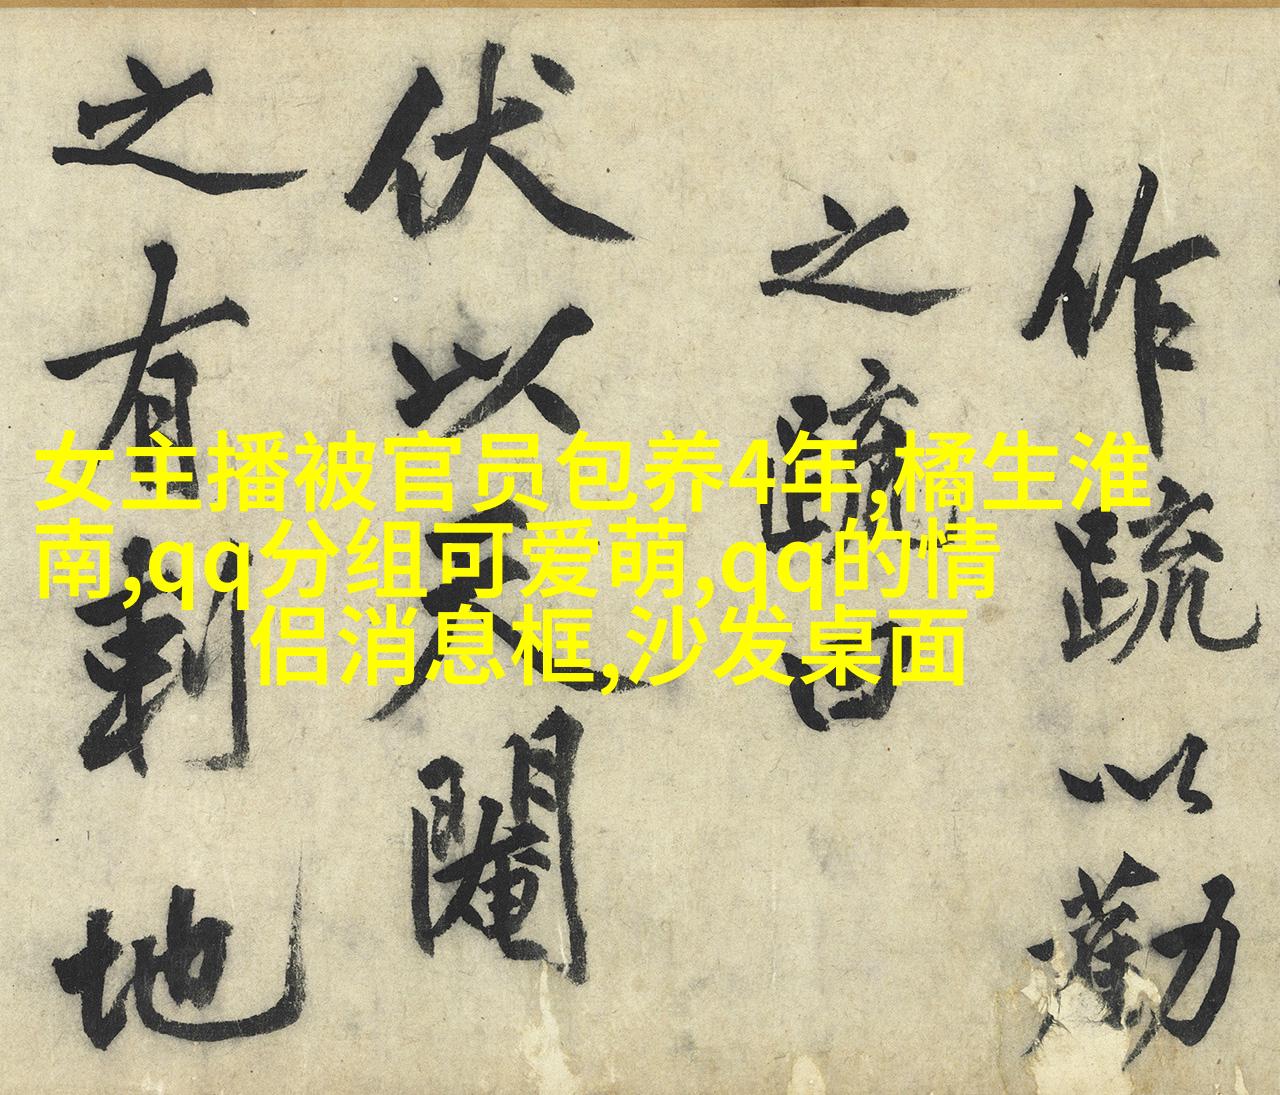 作疏以勸
之疏曰
伏以天閹
之有刺地
女主播被官员包养4年,橘生淮
南,qq分组可爱萌,qq的情
侣消息框,沙发桌面